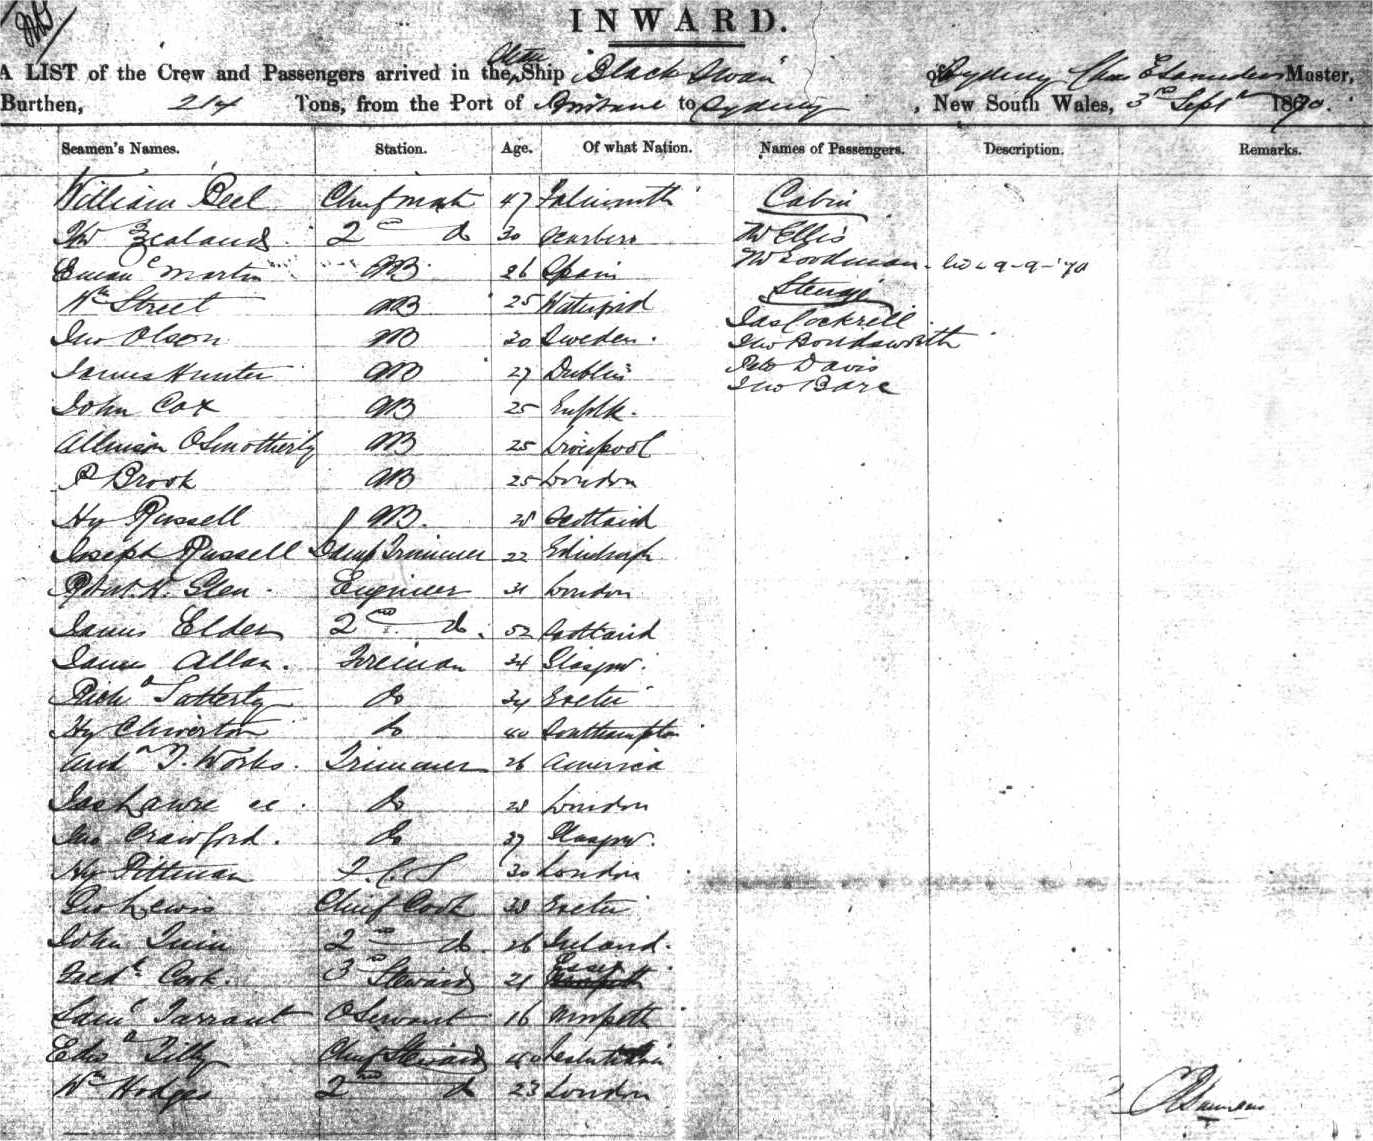 INWARD.
A LIST of the Crew and Passengers arrived in the Ship Black Swan of Sydney Chas E Saunders Master,
Burthen, 214 Tons, from the Port of Brisbane to Sydney, New South Wales, 3rd Septr 1870.
Seamen's Names. Station. Age. Of what Nation. Names of Passengers. Description. Remarks.
William Bell Chief mate 47 Falmouth Cabin
Zealand 2nd do 30 Mr Ellis
Martin AB 26 Spain Mr Goodman 9-9-'70
Wm Street AB 25 Waterford Steerage
Jno Olson AB 30 Sweden. Jas Cockrell
Jno
James Hunter AB 27 Dublin Davis
Jno Bare
John Cox AB 25
AB 25 Liverpool
P Brook AB 25 London
Hy Russell AB. 28 Scotland
Joseph Russell Lamp Trimmer 22 Edinburgh
Robt. K. Glen Engineer 31 London
James Elder 2nd do. 52 Scotland
James Allan. Foreman 34 Glasgow.
Richd do 34 Exeter
Hy Chiverton do 40 Southampton
T. Works. Trimmer 26 America
Jas Lawre do 28 London
Jno Crawford. do 37 Glasgow.
Hy Pittman F.C.S 30 London
Geo Lewis Chief Cook 38 Exeter
John Quin 2nd do. 26 Ireland.
Fredk Cook. 3rd Steward 21 Essex
Saml Tarrant O Servant 16 Morpeth
Edwd Tilly Chief Steward 40
Wm Hodges 2nd do 23 London